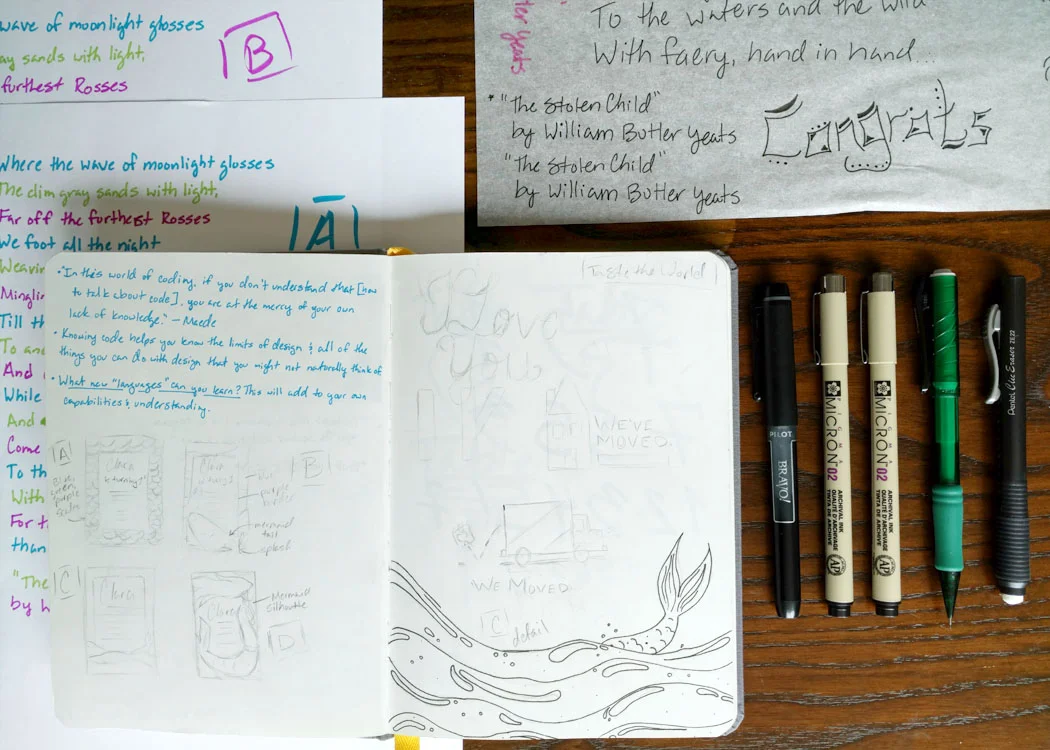 wave of moonlight glosses
ay sands with light,
furthest Rosses
B
Where the wave of moonlight glosses
The dim gray sands with light,
Far off the furthest Rosses
We foot all the night
Weavin
Minglin
Till th
To and
And
While
And
Come
To th
With
For t
than
"The
by W
A
ter Yeats
To the waters and the wild
With faery, hand in hand...
* "The Stolen Child"
by William Butler Yeats
"The Stolen Child"
by William Butler Yeats
Congrats
• "In this world of coding, if you don't understand that [how
to talk about code], you are at the mercy of your own
lack of knowledge." — Maede
• Knowing code helps you know the limits of design & all of the
things you can do with design that you might not naturally think of
• What new "languages" can you learn? This will add to your own
capabilities & understanding.
A
Clara
B
mermaid
tail
splash
C
Clara
Clara
Mermaid
silhouette
D
Taste the World
I Love
You
WE'VE
MOVED.
WE MOVED
C
detail
PILOT
BRAVO!
SIGMA
MICRON 02
ARCHIVAL INK
QUALITÉ D'ARCHIVAGE
TINTA DE ARCHIVE
AP
SIGMA
MICRON 02
ARCHIVAL INK
QUALITÉ D'ARCHIVAGE
TINTA DE ARCHIVE
AP
Pentel Clic Eraser ZE22